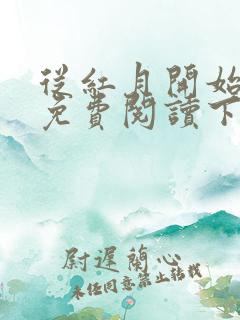 從紅月開始
免費閱讀下
尉遲蘭心
未經同意禁止轉載